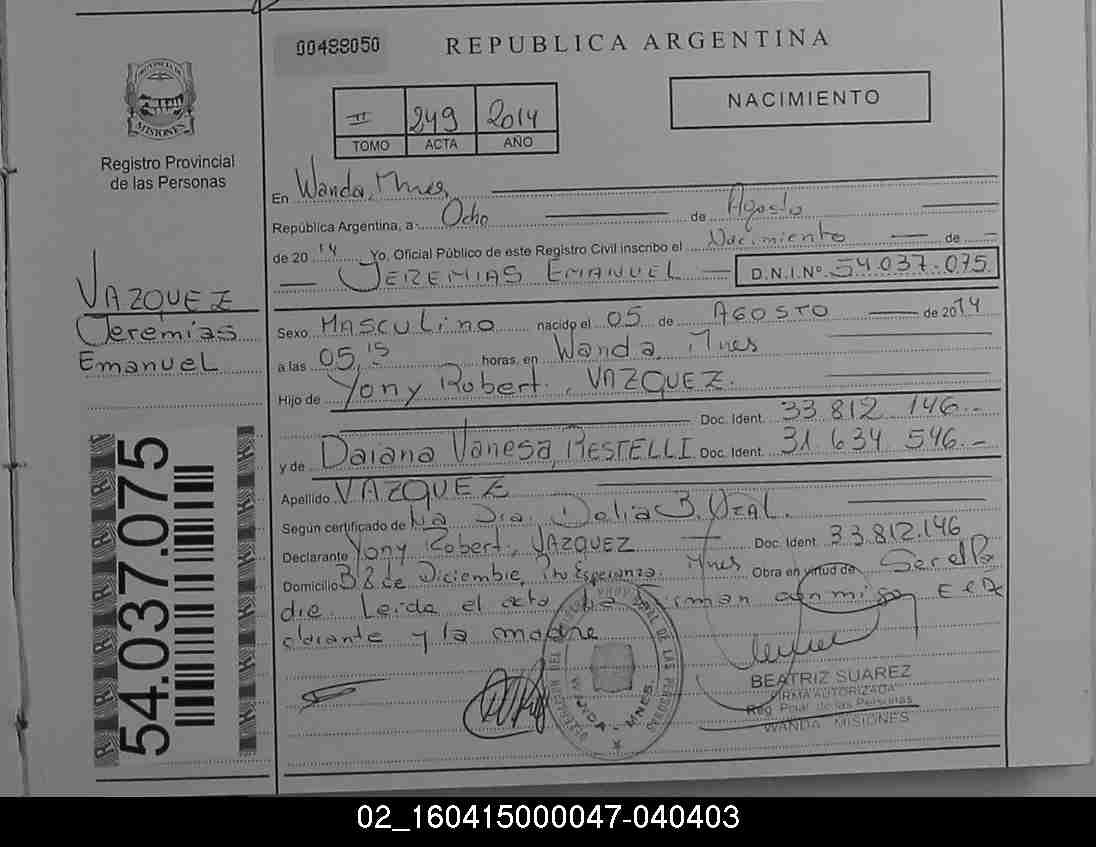 00488050
REPUBLICA ARGENTINA
II 249 2014
TOMO ACTA AÑO
NACIMIENTO
PROVINCIA DE MISIONES
Registro Provincial
de las Personas
VAZQUEZ
Jeremias
Emanuel
54.037.075
En Wanda, Mnes,
República Argentina, a Ocho de Agosto
de 2014 Yo, Oficial Público de este Registro Civil inscribo el Nacimiento de
JEREMIAS EMANUEL D.N.I.Nº 54.037.075
Sexo MASCULINO nacido el 05 de AGOSTO de 2014
a las 05,15 horas, en Wanda, Mnes
Hijo de Yony Robert, VAZQUEZ.
Doc. Ident. 33 812 146.-
y de Daiana Vanesa, RESTELLI Doc. Ident. 31 634 546.-
Apellido VAZQUEZ
Según certificado de La Dra. Delia B.
Declarante Yony Robert, VAZQUEZ Doc. Ident. 33.812.146
Domicilio B 8 de Diciembre, Pto Esperanza. Mnes Obra en virtud de Ser el Pa
dre. Leida el acta La Firman conmigo El De
clarante y la madre
WANDA - MNES.
BEATRIZ SUAREZ
FIRMA AUTORIZADA
Reg. Pcial. de las Personas
WANDA MISIONES
02_160415000047-040403